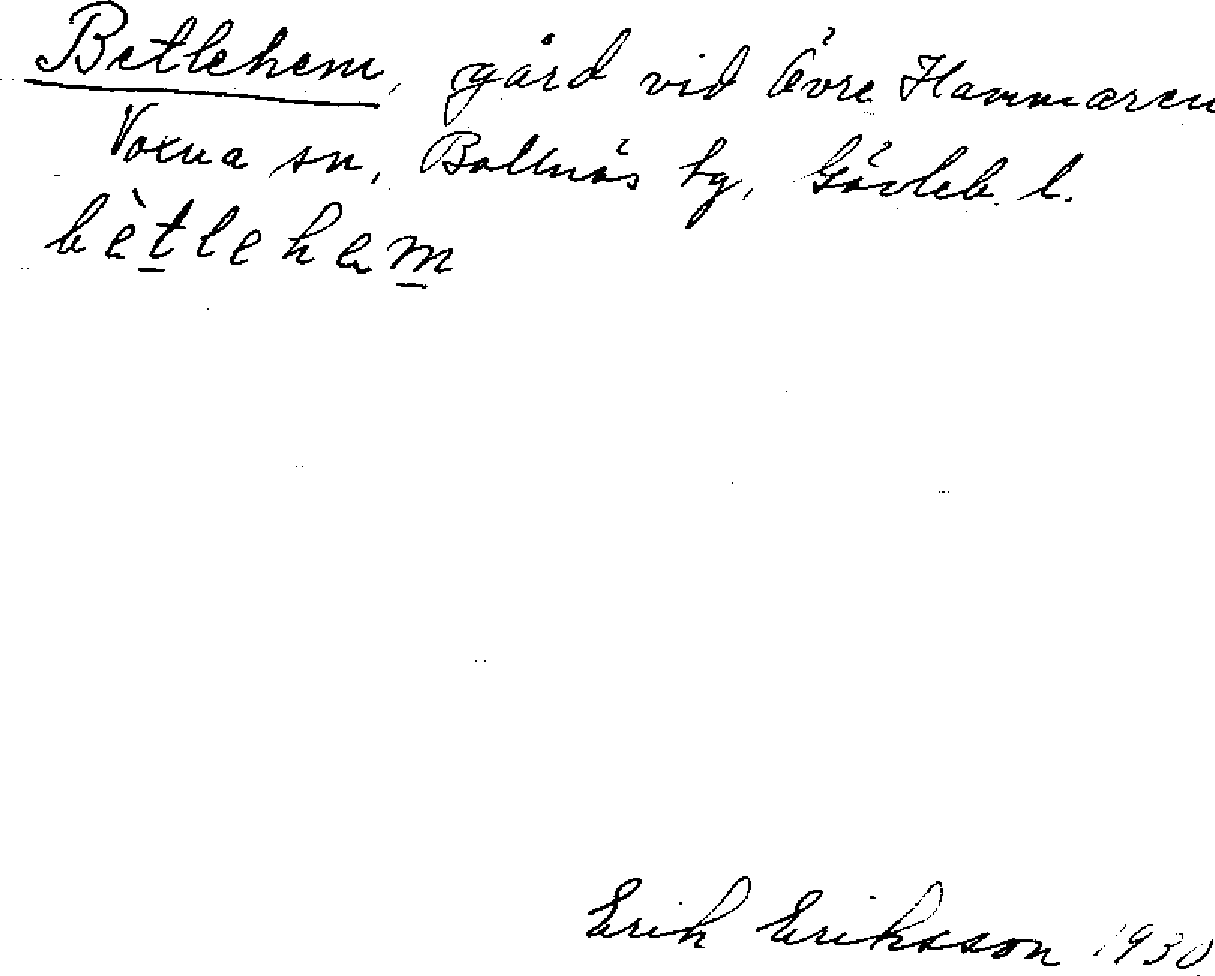 Betlehem, gård vid Övre Hammaren
Voxna sn, Bollnäs tg, Gävleb. l.
bètlehem
Erik Eriksson 1930